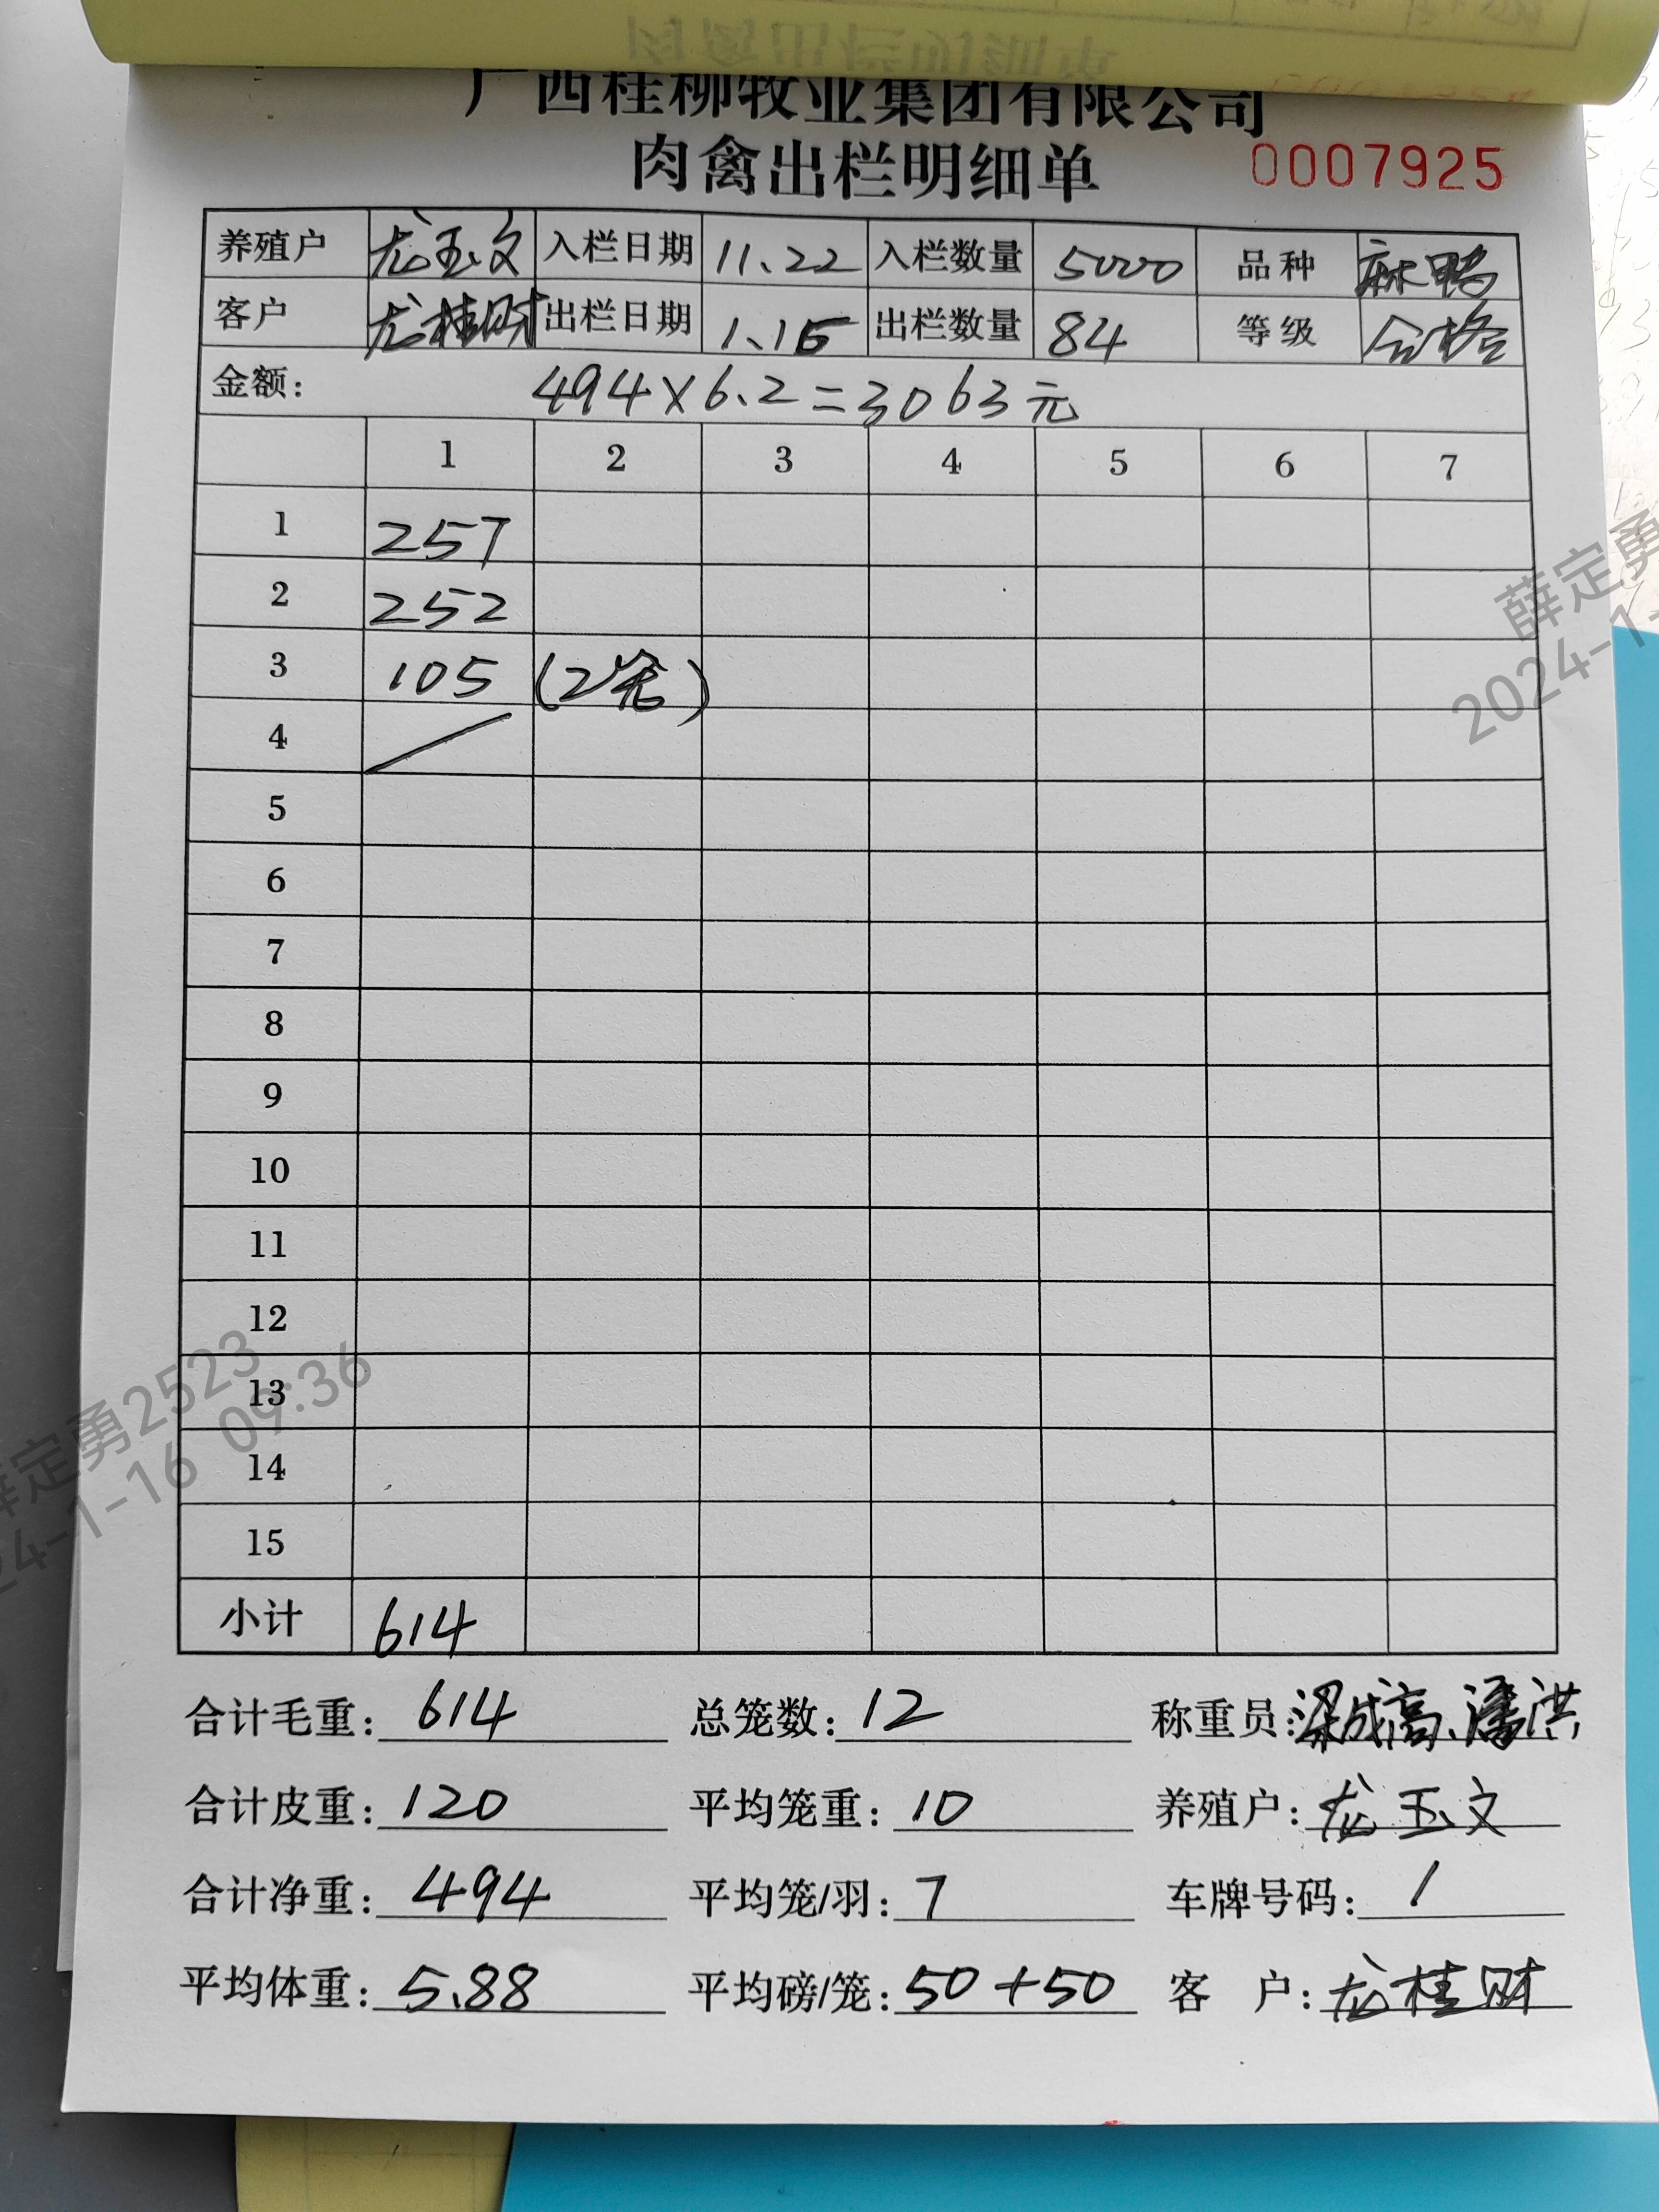 广西桂柳牧业集团有限公司
肉禽出栏明细单 0007925
养殖户 龙玉文 入栏日期 11.22 入栏数量 5000 品种 麻鸭
客户 龙桂财 出栏日期 1.15 出栏数量 84 等级 合格
金额: 494×6.2=3063元
1 2 3 4 5 6 7
1 257
2 252
3 105 (2笼)
4 /
5
6
7
8
9
10
11
12
13
14
15
小计 614
合计毛重: 614 总笼数: 12 称重员: 梁成高、潘洪
合计皮重: 120 平均笼重: 10 养殖户: 龙玉文
合计净重: 494 平均笼/羽: 7 车牌号码: /
平均体重: 5.88 平均磅/笼: 50+50 客 户: 龙桂财
薛定勇
2024-1-
薛定勇2523
24-1-16 09:36